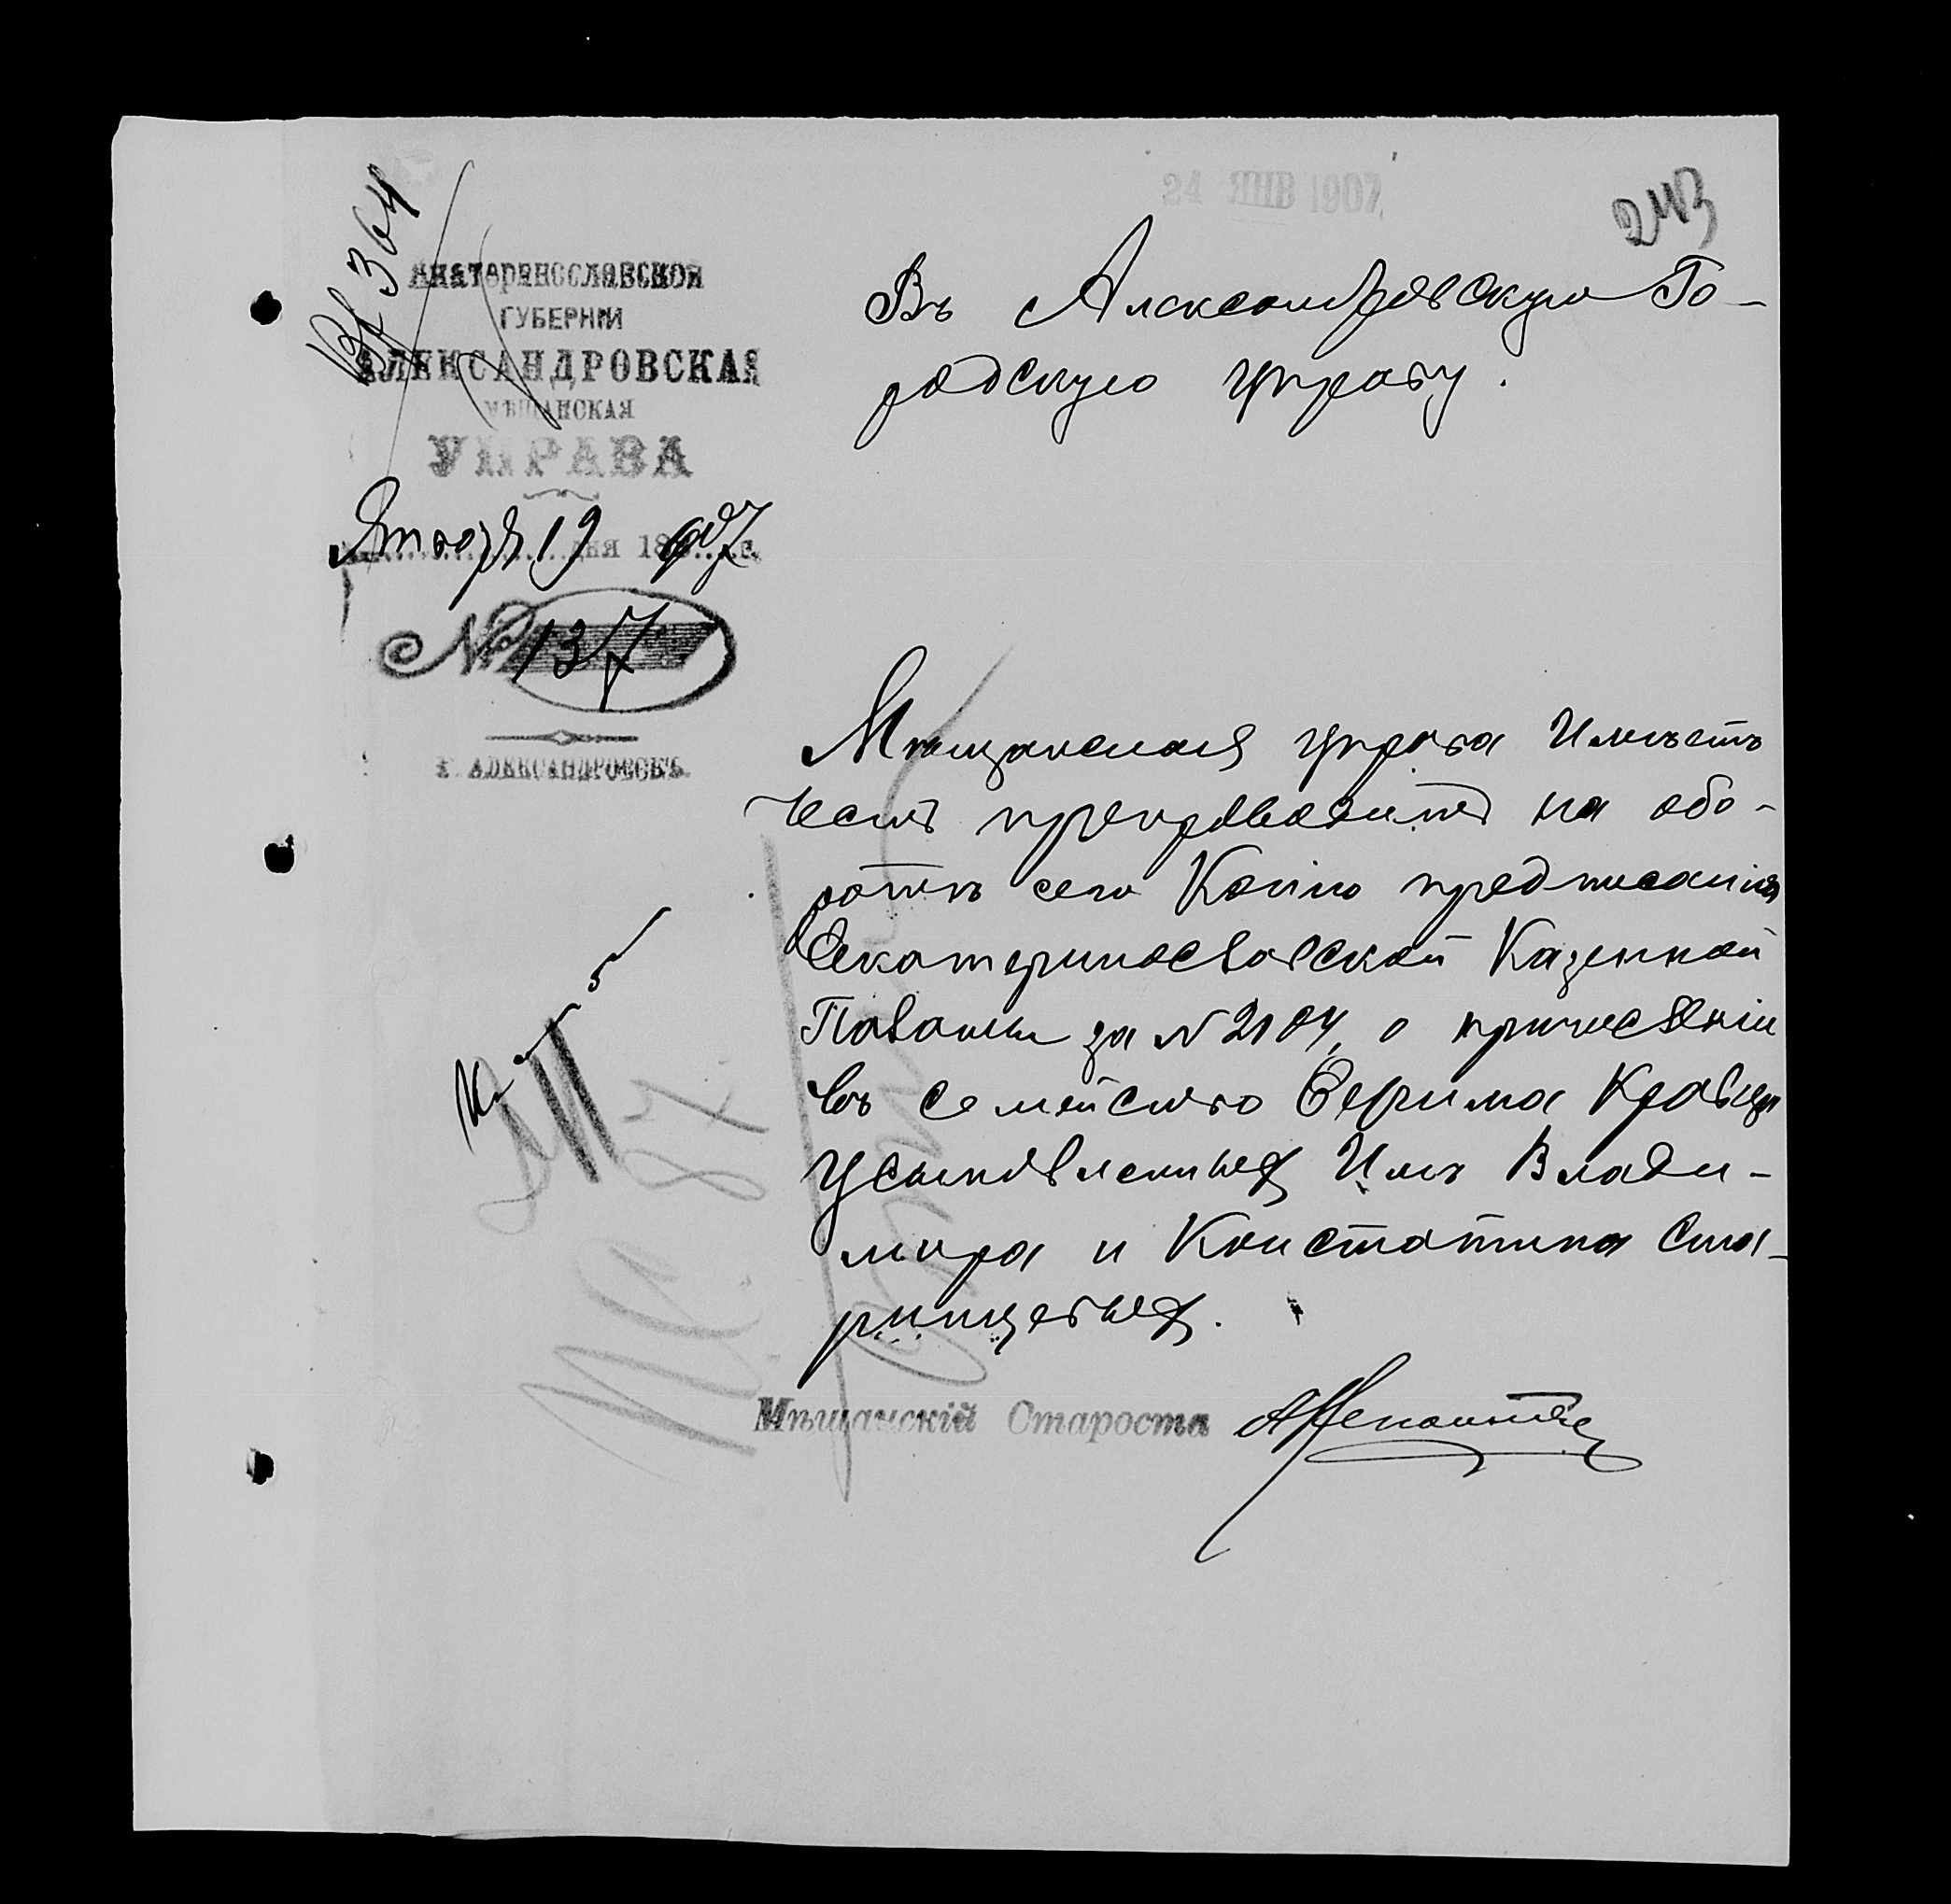 24 ЯНВ 1907
243
Вх 364
Екатеринославской
ГУБЕРНІИ
АЛЕКСАНДРОВСКАЯ
МѢЩАНСКАЯ
УПРАВА
Января 19 дня 1907 г.
№ 137
Г. АЛЕКСАНДРОВСКЪ.
Въ Александровскую Го-
родскую управу.
Мѣщанская управа Имѣетъ
честь препроводить на обо-
ротѣ сего Копію предписанія
Екатеринославской Казенной
Палаты за № 2104, о причисленіи
въ семейство Ефима Кравца
усыновленныхъ Имъ Влади-
мира и Констатина Ста-
рицевыхъ.
Мѣщанскій Староста